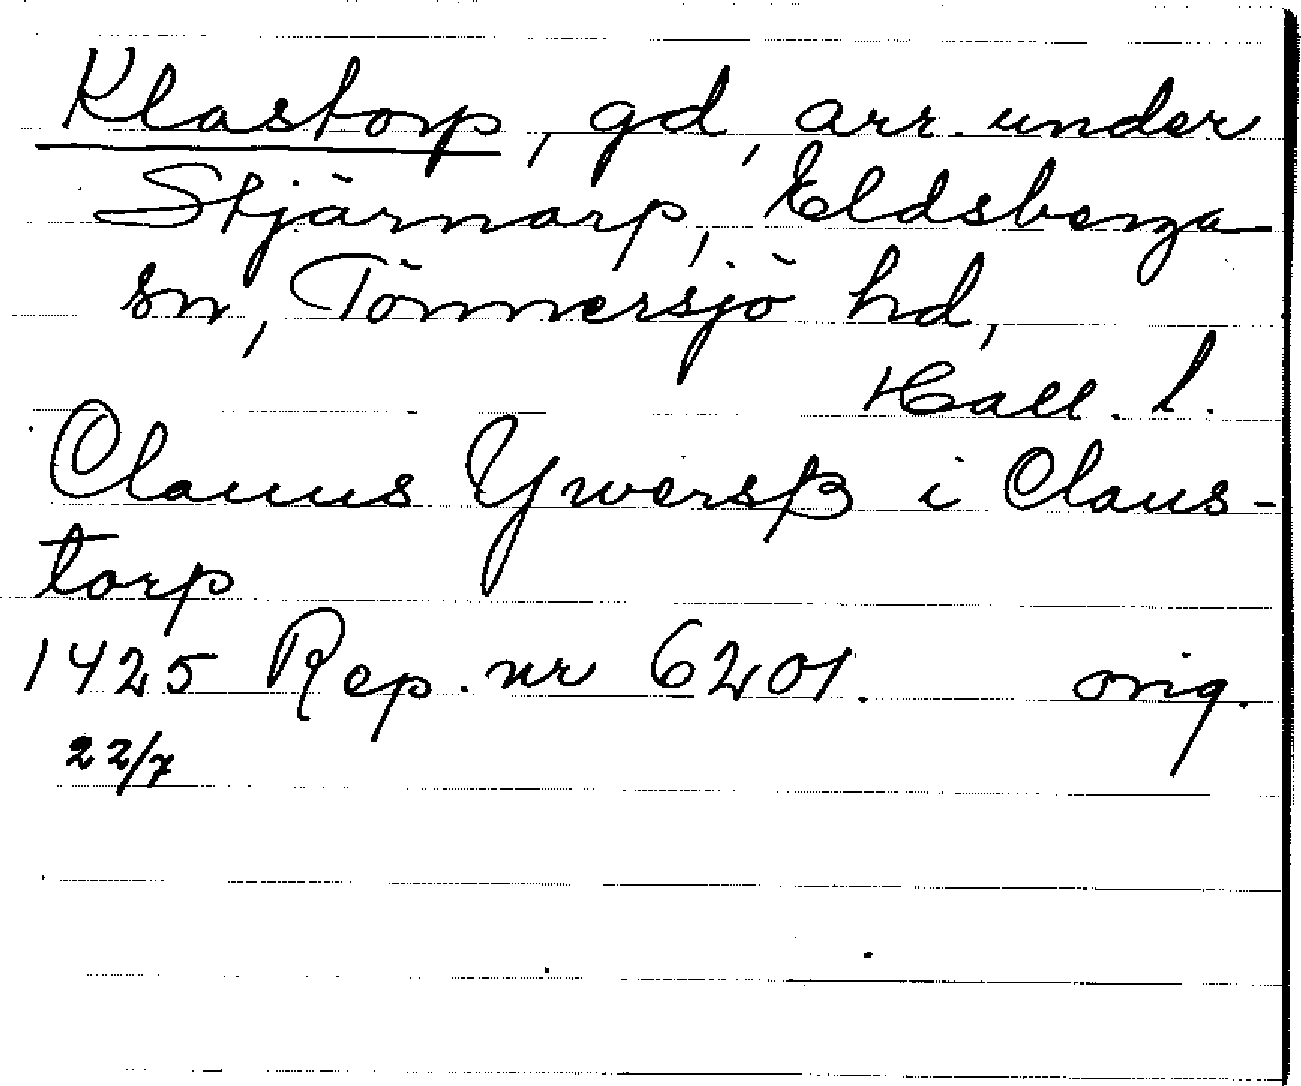 Klastorp, gd, arr. under
Skjärnarp, Eldsberga
sn, Tönnersjö hd,
Hall. l.
Clauus Ywersß i Claus-
torp
1425 Rep. nr 6201. orig.
22/7